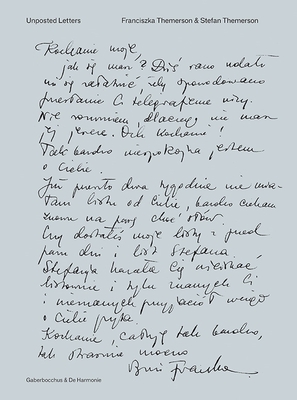 Unposted Letters
Franciszka Themerson & Stefan Themerson
Kochanie moje,
jak się masz? Dziś rano udało
mi się załatwić, żeby spowodowano
przesłanie Ci telegraficznie wizy.
Nie rozumiem, dlaczego nie masz
jej jeszcze. Och kochanie!
Tak bardzo niespokojna jestem
o Ciebie.
Już prawie dwa tygodnie nie mia-
łam listu od Ciebie, bardzo czekam
znowu na parę choć słów.
Czy dostałeś moje listy z przed
paru dni i list Stefana.
Stefania kazała Cię uściskać,
i tylu znanych Ci
i nieznanych przyjaciół wciąż
o Ciebie pyta.
Kochanie, całuję tak bardzo,
tak strasznie mocno
Franka
Gaberbocchus & De Harmonie